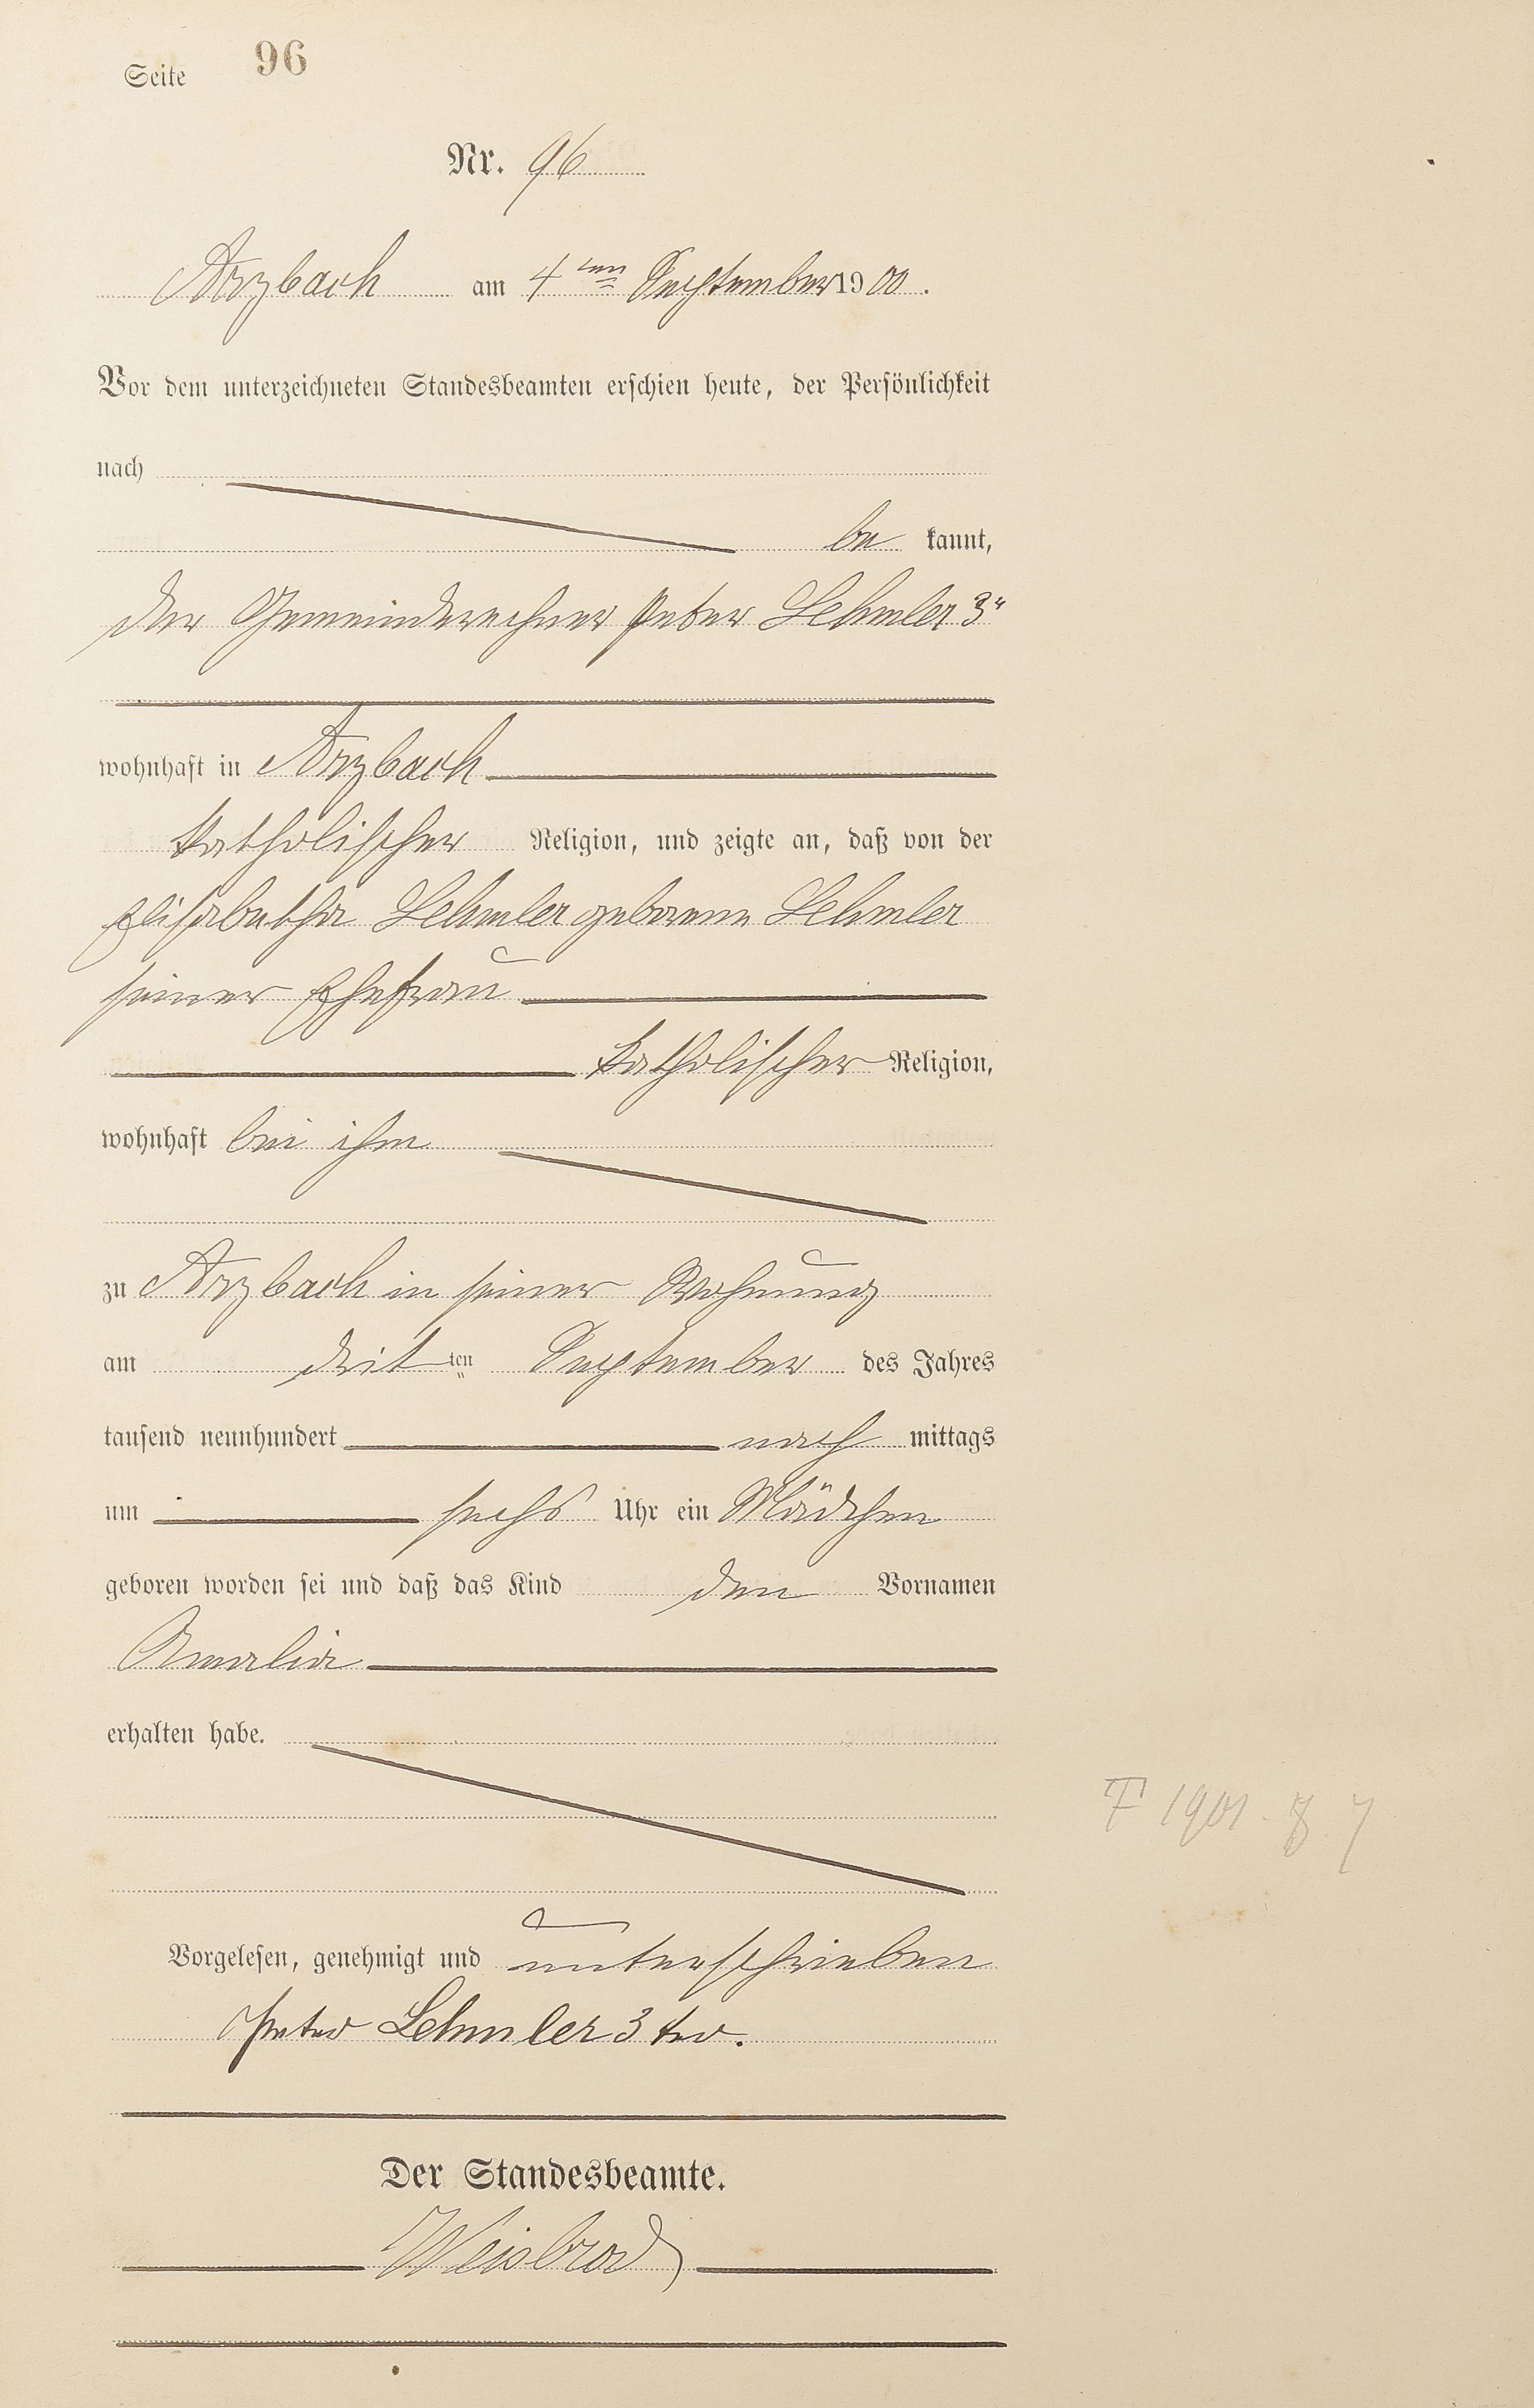 Seite 96
Nr. 96
Arzbach am 4ten September 1900.
Vor dem unterzeichneten Standesbeamten erschien heute, der Persönlichkeit
nach
be kannt,
der Gemeinderechner Peter Lehmler 3r
wohnhaft in Arzbach
katholischer Religion, und zeigte an, daß von der
Elisabetha Lehmler geborene Lehmler
seiner Ehefrau
katholischer Religion,
wohnhaft bei ihm
zu Arzbach in seiner Wohnung
am dritten September des Jahres
tausend neunhundert nach mittags
um sechs Uhr ein Mädchen
geboren worden sei und daß das Kind den Vornamen
Amalia
erhalten habe.
F 1901.
Vorgelesen, genehmigt und unterschrieben
Peter Lehmler 3ter.
Der Standesbeamte.
Weisbrod